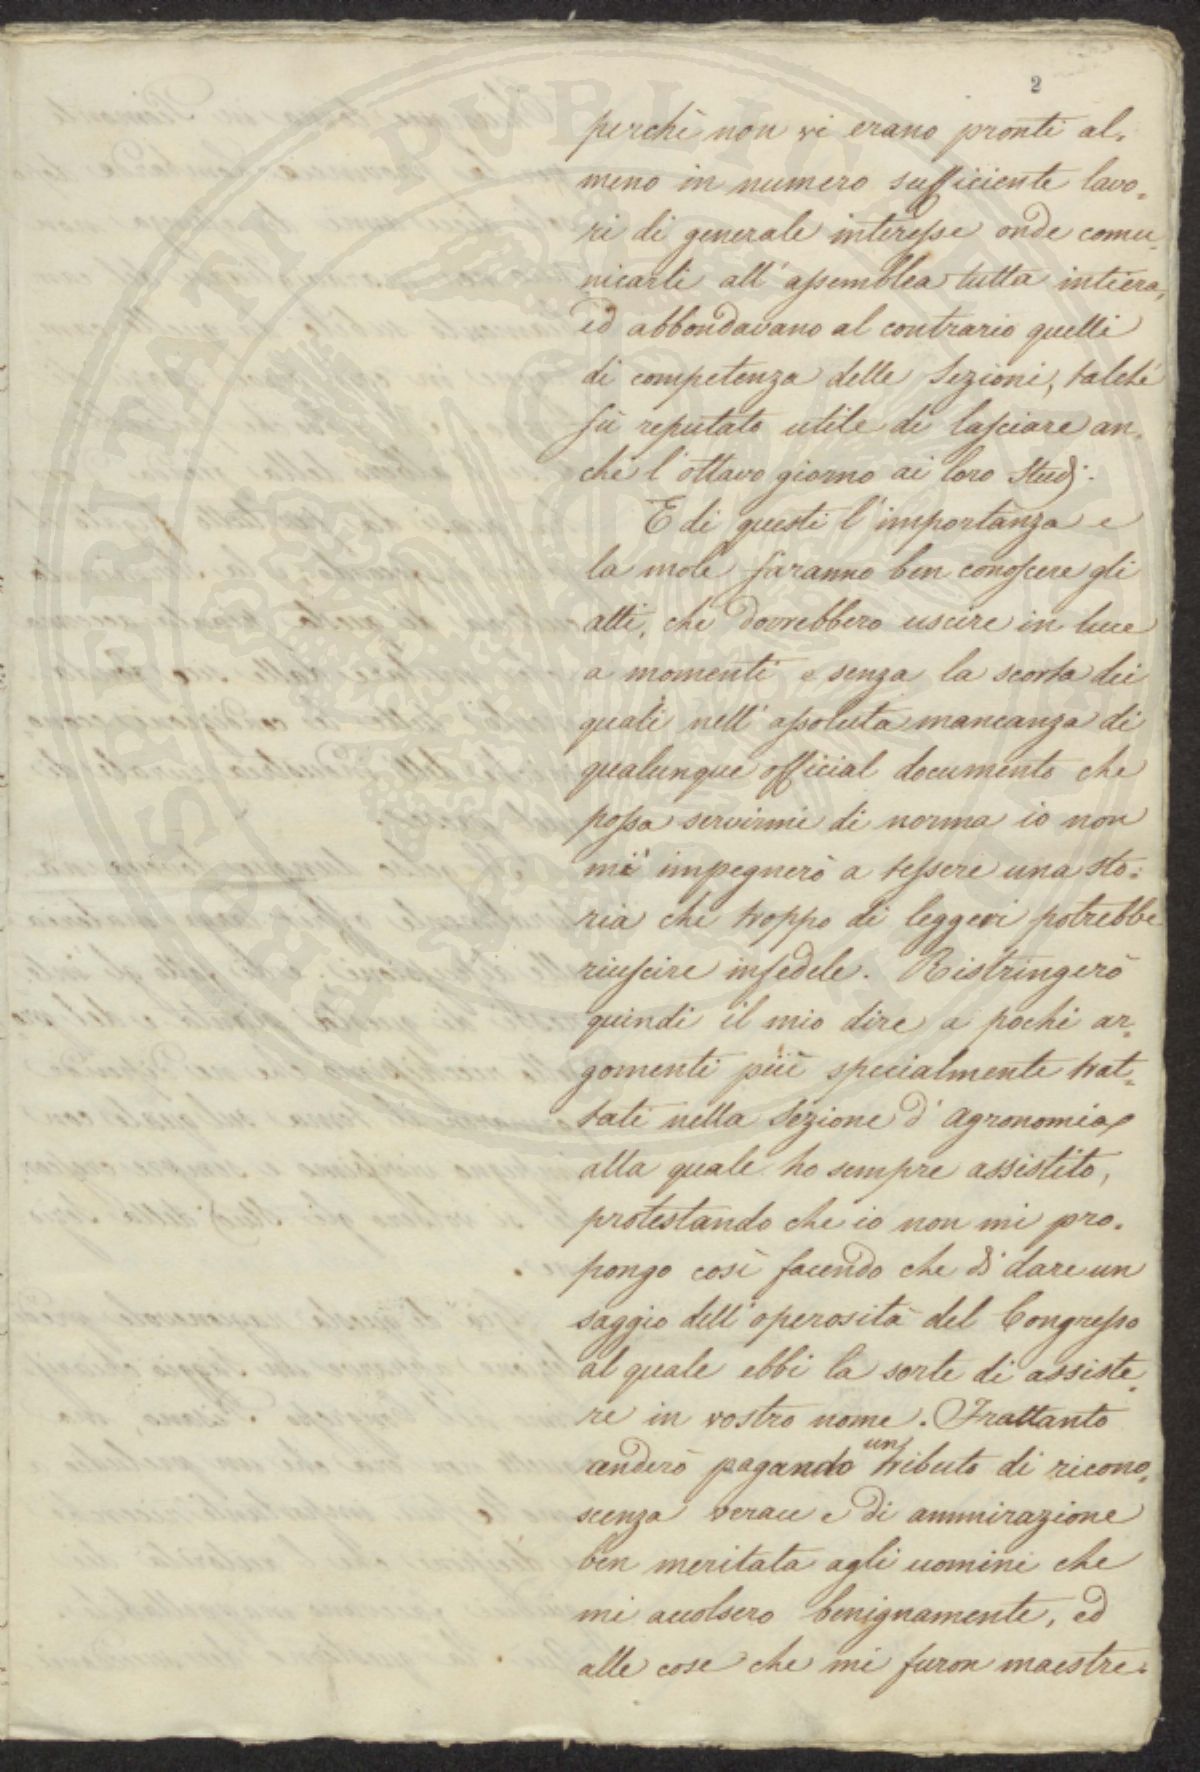 2
perchè non vi erano pronti al=
meno in numero sufficiente lavo=
ri di generale interesse onde comu=
nicarli all'assemblea tutta intiera,
ed abbondavano al contrario quelli
di competenza delle Sezioni, talchè
fù reputato utile di lasciare an=
che l'ottavo giorno ai loro Studj.
E di questi l'importanza e
la mole faranno ben conoscere gli
atti, che dovrebbero uscire in luce
a momenti e senza la scorta dei
quali nell'assoluta mancanza di
qualunque official documento che
possa servirmi di norma io non
mi impegnerò a tessere una sto=
ria che troppo di leggeri potrebbe
riuscire infedele. Ristringerò
quindi il mio dire a pochi ar=
gomenti più specialmente trat=
tati nella Sezione d'Agronomia,
alla quale ho sempre assistito,
protestando che io non mi pro=
pongo così facendo che di dare un
saggio dell'operosità del Congresso
al quale ebbi la sorte di assiste=
re in vostro nome. Frattanto
anderò pagando un tributo di ricono=
scenza verace e di ammirazione
ben meritata agli uomini che
mi accolsero benignamente, ed
alle cose che mi furon maestre.
PUBLICAE PROSPERITATI